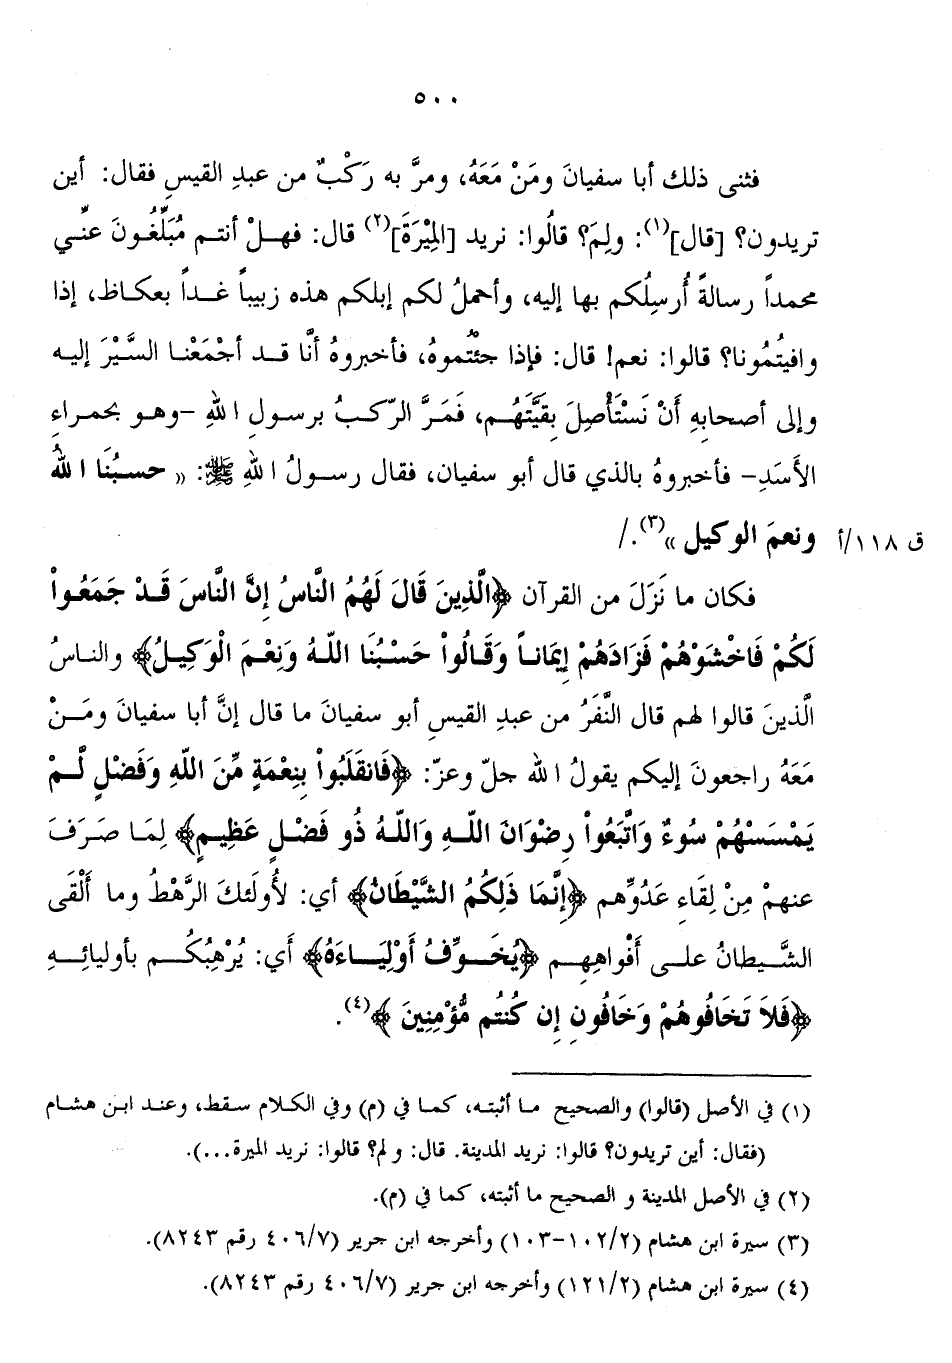 ٥٠٠
فثنى ذلك أبا سفيانَ ومَنْ مَعَهُ، ومرَّ به رَكْبٌ من عبدِ القيسِ فقال: أين
تريدون؟ [قال](١): ولِمَ؟ قالُوا: نريد [المِيْرَةَ](٢) قال: فهـلْ أنتـم مُبَلِّغُـونَ عنِّـي
محمداً رسالةً أُرسِلُكم بها إليه، وأحملُ لكم إبلكم هذه زبيباً غـداً بعكـاظ، إذا
وافيتُمُونا؟ قالوا: نعم! قال: فإذا جئْتُموهُ، فأخبروهُ أنَّا قـد أجْمَعْنـا السَّيْرَ إليـه
وإلى أصحابِهِ أنْ نَسْتَأْصِلَ بِقيَّتَهُـم، فَمَرَّ الرّكبُ برسولِ اللهِ -وهـو بحمراءِ
الأَسَدِ- فأخبروهُ بالذي قال أبو سفيان، فقال رسـولُ اللهِ ﷺ: « حسـبُنَا اللهُ
ونعمَ الوكيل »(٣)./
ق ١١٨/أ
فكان ما نَزَلَ من القرآن ﴿الَّذِينَ قَالَ لَهُمُ النَّاسُ إِنَّ النَّاسَ قَـدْ جَمَعُـواْ
لَكُمْ فَاخْشَوْهُمْ فَزَادَهُمْ إِيمَانـاً وَقَالُواْ حَسْبُنَا اللّـهُ وَنِعْـمَ الْوَكِيـلُ﴾ والنـاسُ
الَّذينَ قالوا لهم قال النَّفَرُ من عبدِ القيسِ أبو سفيانَ ما قال إنَّ أبا سفيانَ ومَـنْ
مَعَهُ راجعونَ إليكم يقولُ الله جلّ وعزّ: ﴿فَانقَلَبُواْ بِنِعْمَةٍ مِّنَ اللّهِ وَفَضْلٍ لَّـمْ
يَمْسَسْهُمْ سُوءٌ وَاتَّبَعُواْ رِضْوَانَ اللّـهِ وَاللّـهُ ذُو فَضْـلٍ عَظِيـمٍ﴾ لِمَـا صَـرَفَ
عنهمْ مِنْ لِقَاءِ عَدُوِّهم ﴿إِنَّمَا ذَلِكُمُ الشَّيْطَانُ﴾ أي: لأُولَئكَ الرَّهْطُ وما أَلْقَى
الشَّـيطانُ علـى أَفْواهِهِـم ﴿يُخَـوِّفُ أَوْلِيَـاءَهُ﴾ أَي: يُرْهِبُكُـم بأوليائِـهِ
﴿فَلاَ تَخَافُوهُمْ وَخَافُونِ إِن كُنتُم مُّؤْمِنِينَ ﴾(٤).
(١) في الأصل (قالوا) والصحيح ما أثبتـه، كمـا في (م) وفي الكـلام سـقط، وعنـد ابـن هشـام
(فقال: أين تريدون؟ قالوا: نريد المدينة. قال: و لم؟ قالوا: نريد الميرة...).
(٢) في الأصل المدينة و الصحيح ما أثبته، كما في (م).
(٣) سيرة ابن هشام (١٠٢/٢-١٠٣) وأخرجه ابن جرير (٤٠٦/٧ رقم ٨٢٤٣).
(٤) سيرة ابن هشام (١٢١/٢) وأخرجه ابن جرير (٤٠٦/٧ رقم ٨٢٤٣).